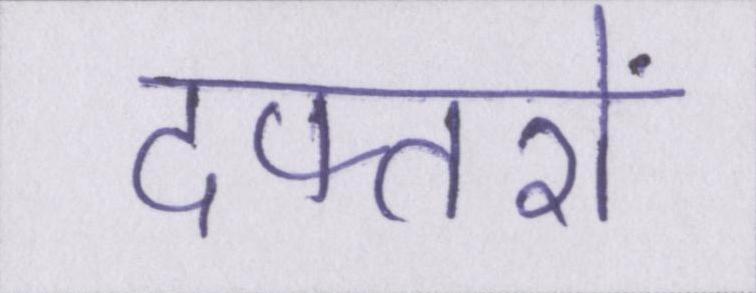 दफ्तरों